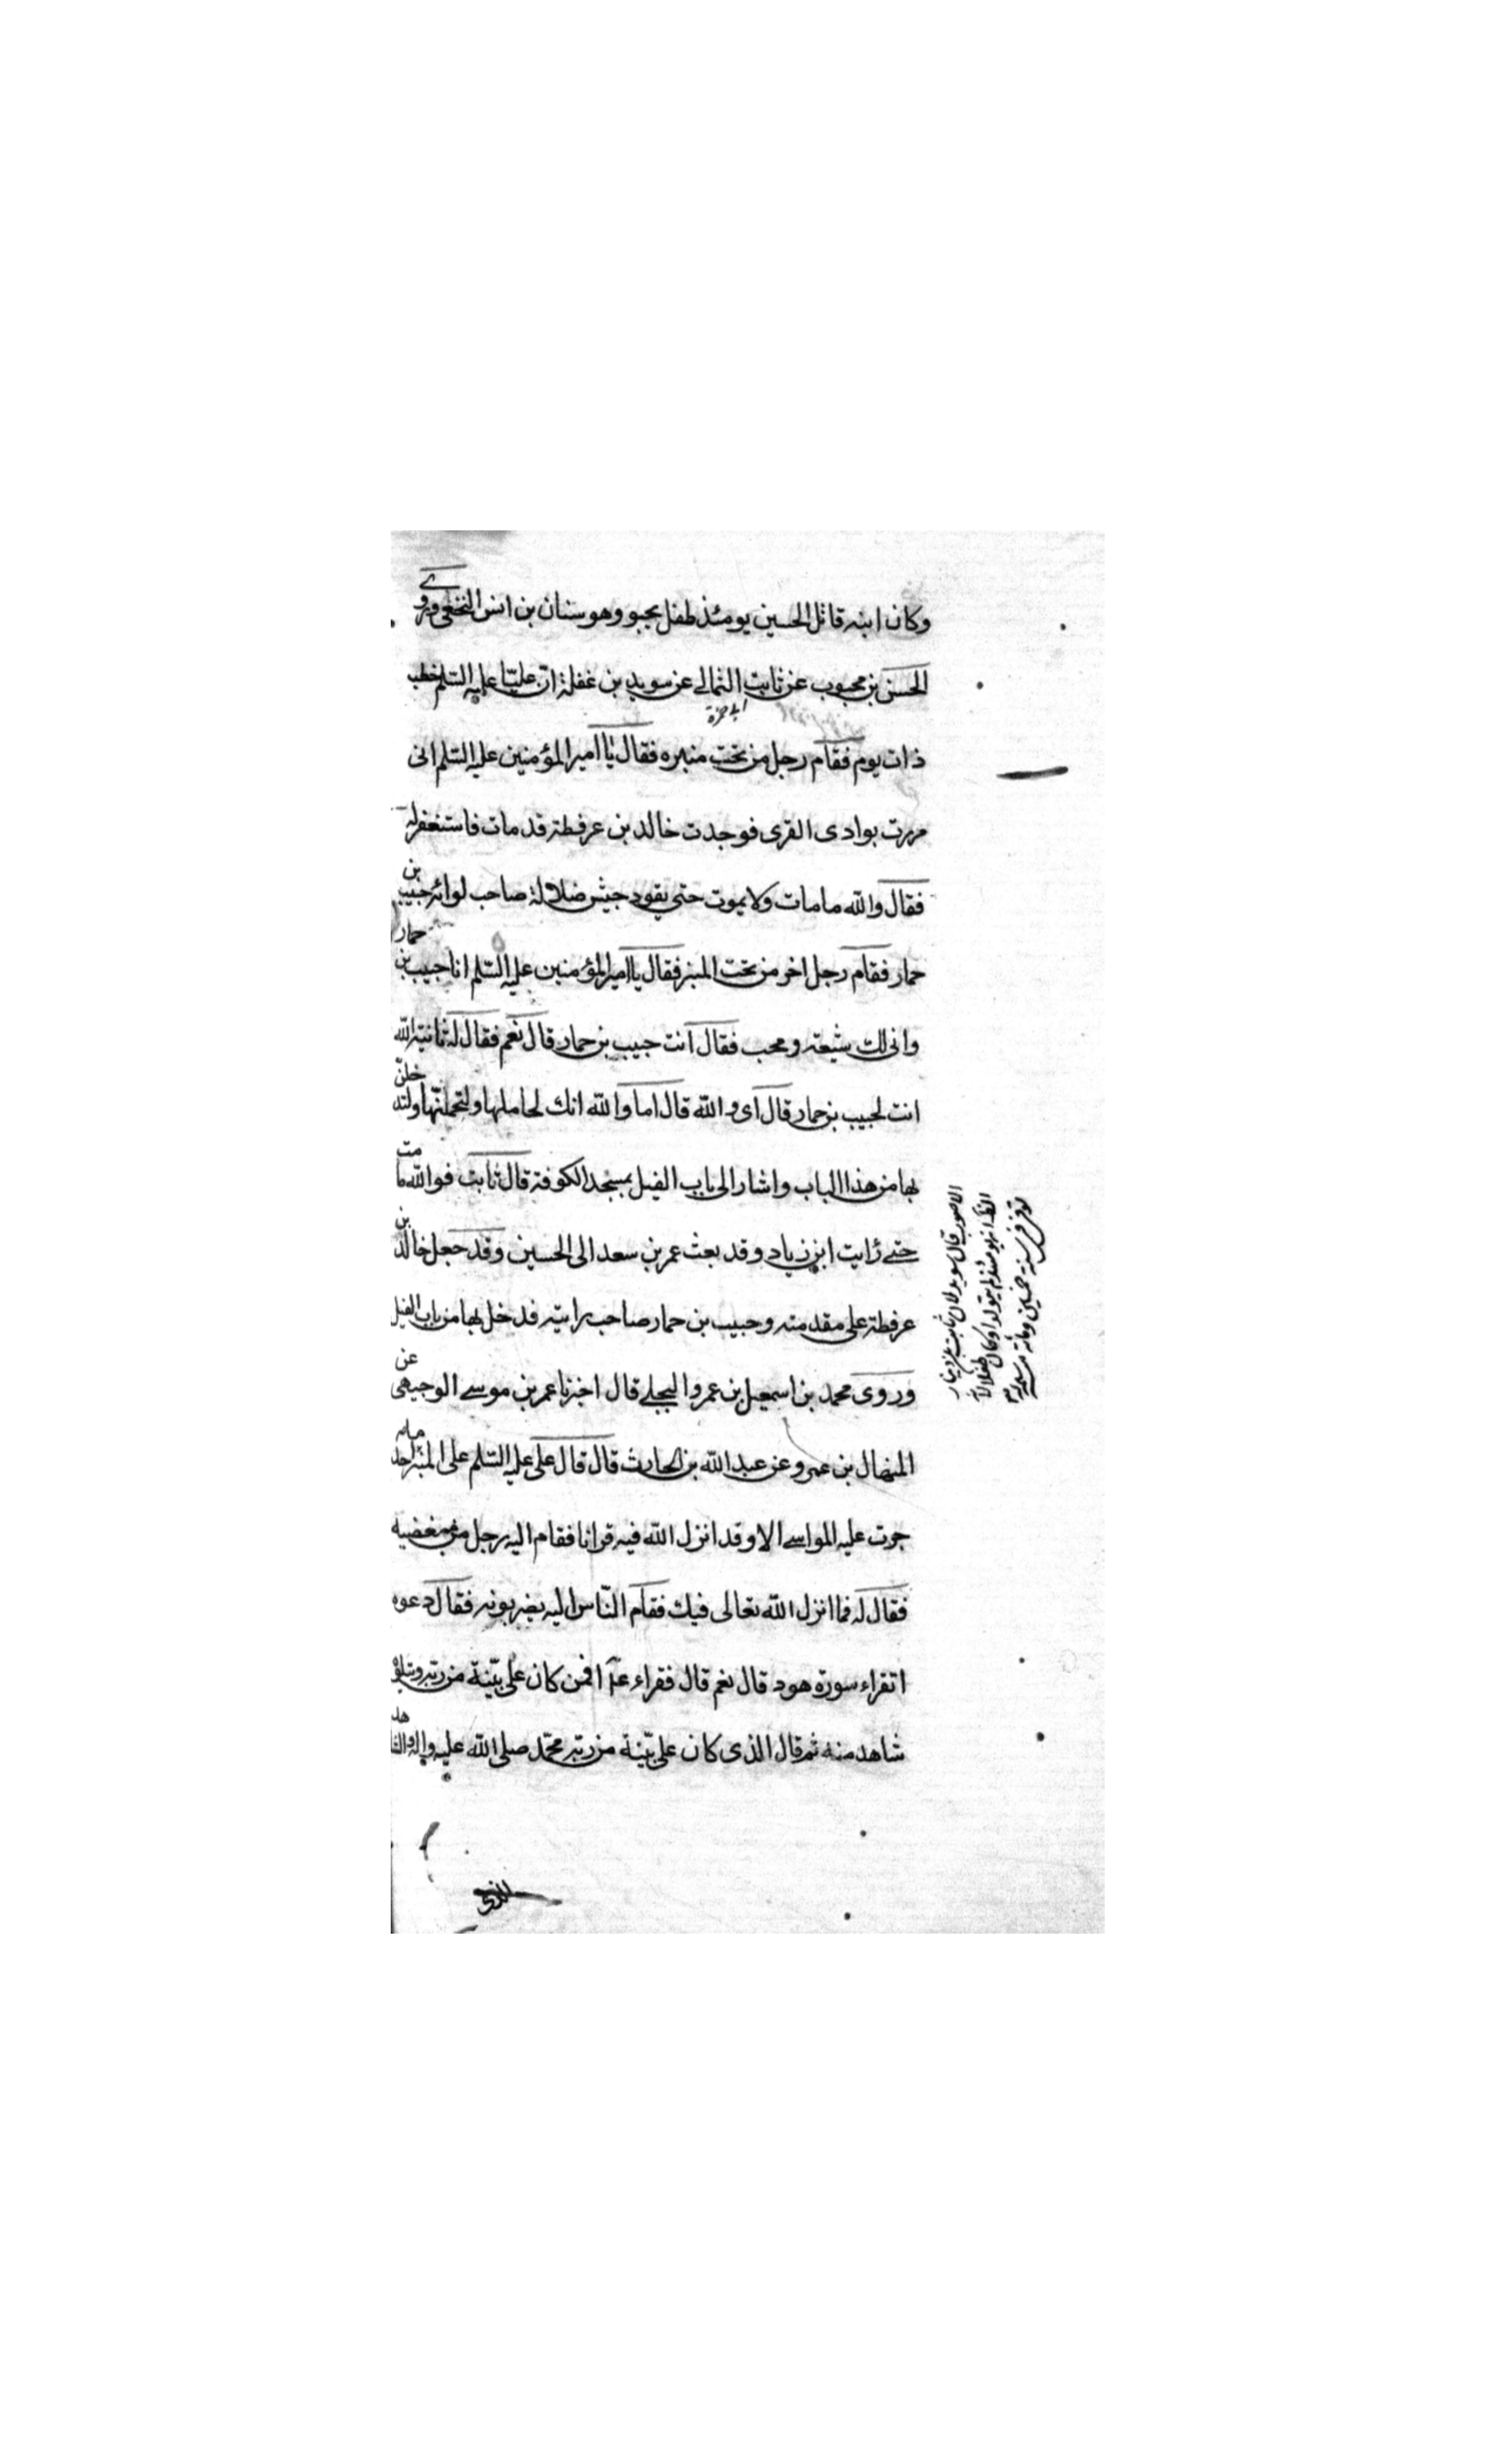 وكان ابنه قاتل الحسين يومئذ طفل يحبو وهو سنان بن انس النخعى وروى
الحسن بن محبوب عن ثابت الثمالے عن سويد بن غفلة انّ عليّا عليه السّلم خطب
ابے حمزة
ذات يوم فقام رجل من تحت منبره فقال يا امير المؤمنين عليه السّلم انى
مررت بوادى القرى فوجدت خالد بن عرفطة قد مات فاستغفر له
فقال والله ما مات ولا يموت حتى يقود جيش ضلالة صاحب لوائه حبيب بن
حمار فقام رجل اخر من تحت المنبر فقال يا امير المؤمنين عليه السّلم انا حبيب بن حمار
وانى لك شيعة ومحب فقال انت حبيب بن حمار قال نعم فقال له ثانية الله
انت لحبيب بن حمار قال اى والله قال اما والله انك لحاملها ولتحملنّها ولتدخلنّ
بها من هذا الباب واشار الى باب الفيل بمسجد الكوفة قال ثابت فوالله ما مت
حتے رايت ابن زياد وقد بعث عمر بن سعد الى الحسين وقد جعل خالد بن
عرفطة على مقدمته وحبيب بن حمار صاحب رايته فدخل بها من باب الفيل
وروى محمد بن اسمعيل بن عمرو البجلے قال اخبرنا عمر بن موسے الوجيهى عن
المنهال بن عمرو عن عبد الله بن الحارث قال قال على عليه السّلم على المنبر ما احد
جرت عليه المواسے الا وقد انزل الله فيه قرانا فقام اليه رجل من مبغضيه
فقال له فما انزل الله تعالى فيك فقام النّاس اليه يضربونه فقال دعوه
اتقراء سورة هود قال نعم قال فقراء عم افمن كان على بيّنة من ربّه ويتلوه
شاهد منه ثم قال الذى كان على بيّنة من ربّه محمّد صلى الله عليه واله والشاهد
الاصوب قال سويد لان ثابت بن دينار
انه يومئذ لم يتولد او كان طفلا لانه
توفى فى سنة خمسين ومأة
الذى